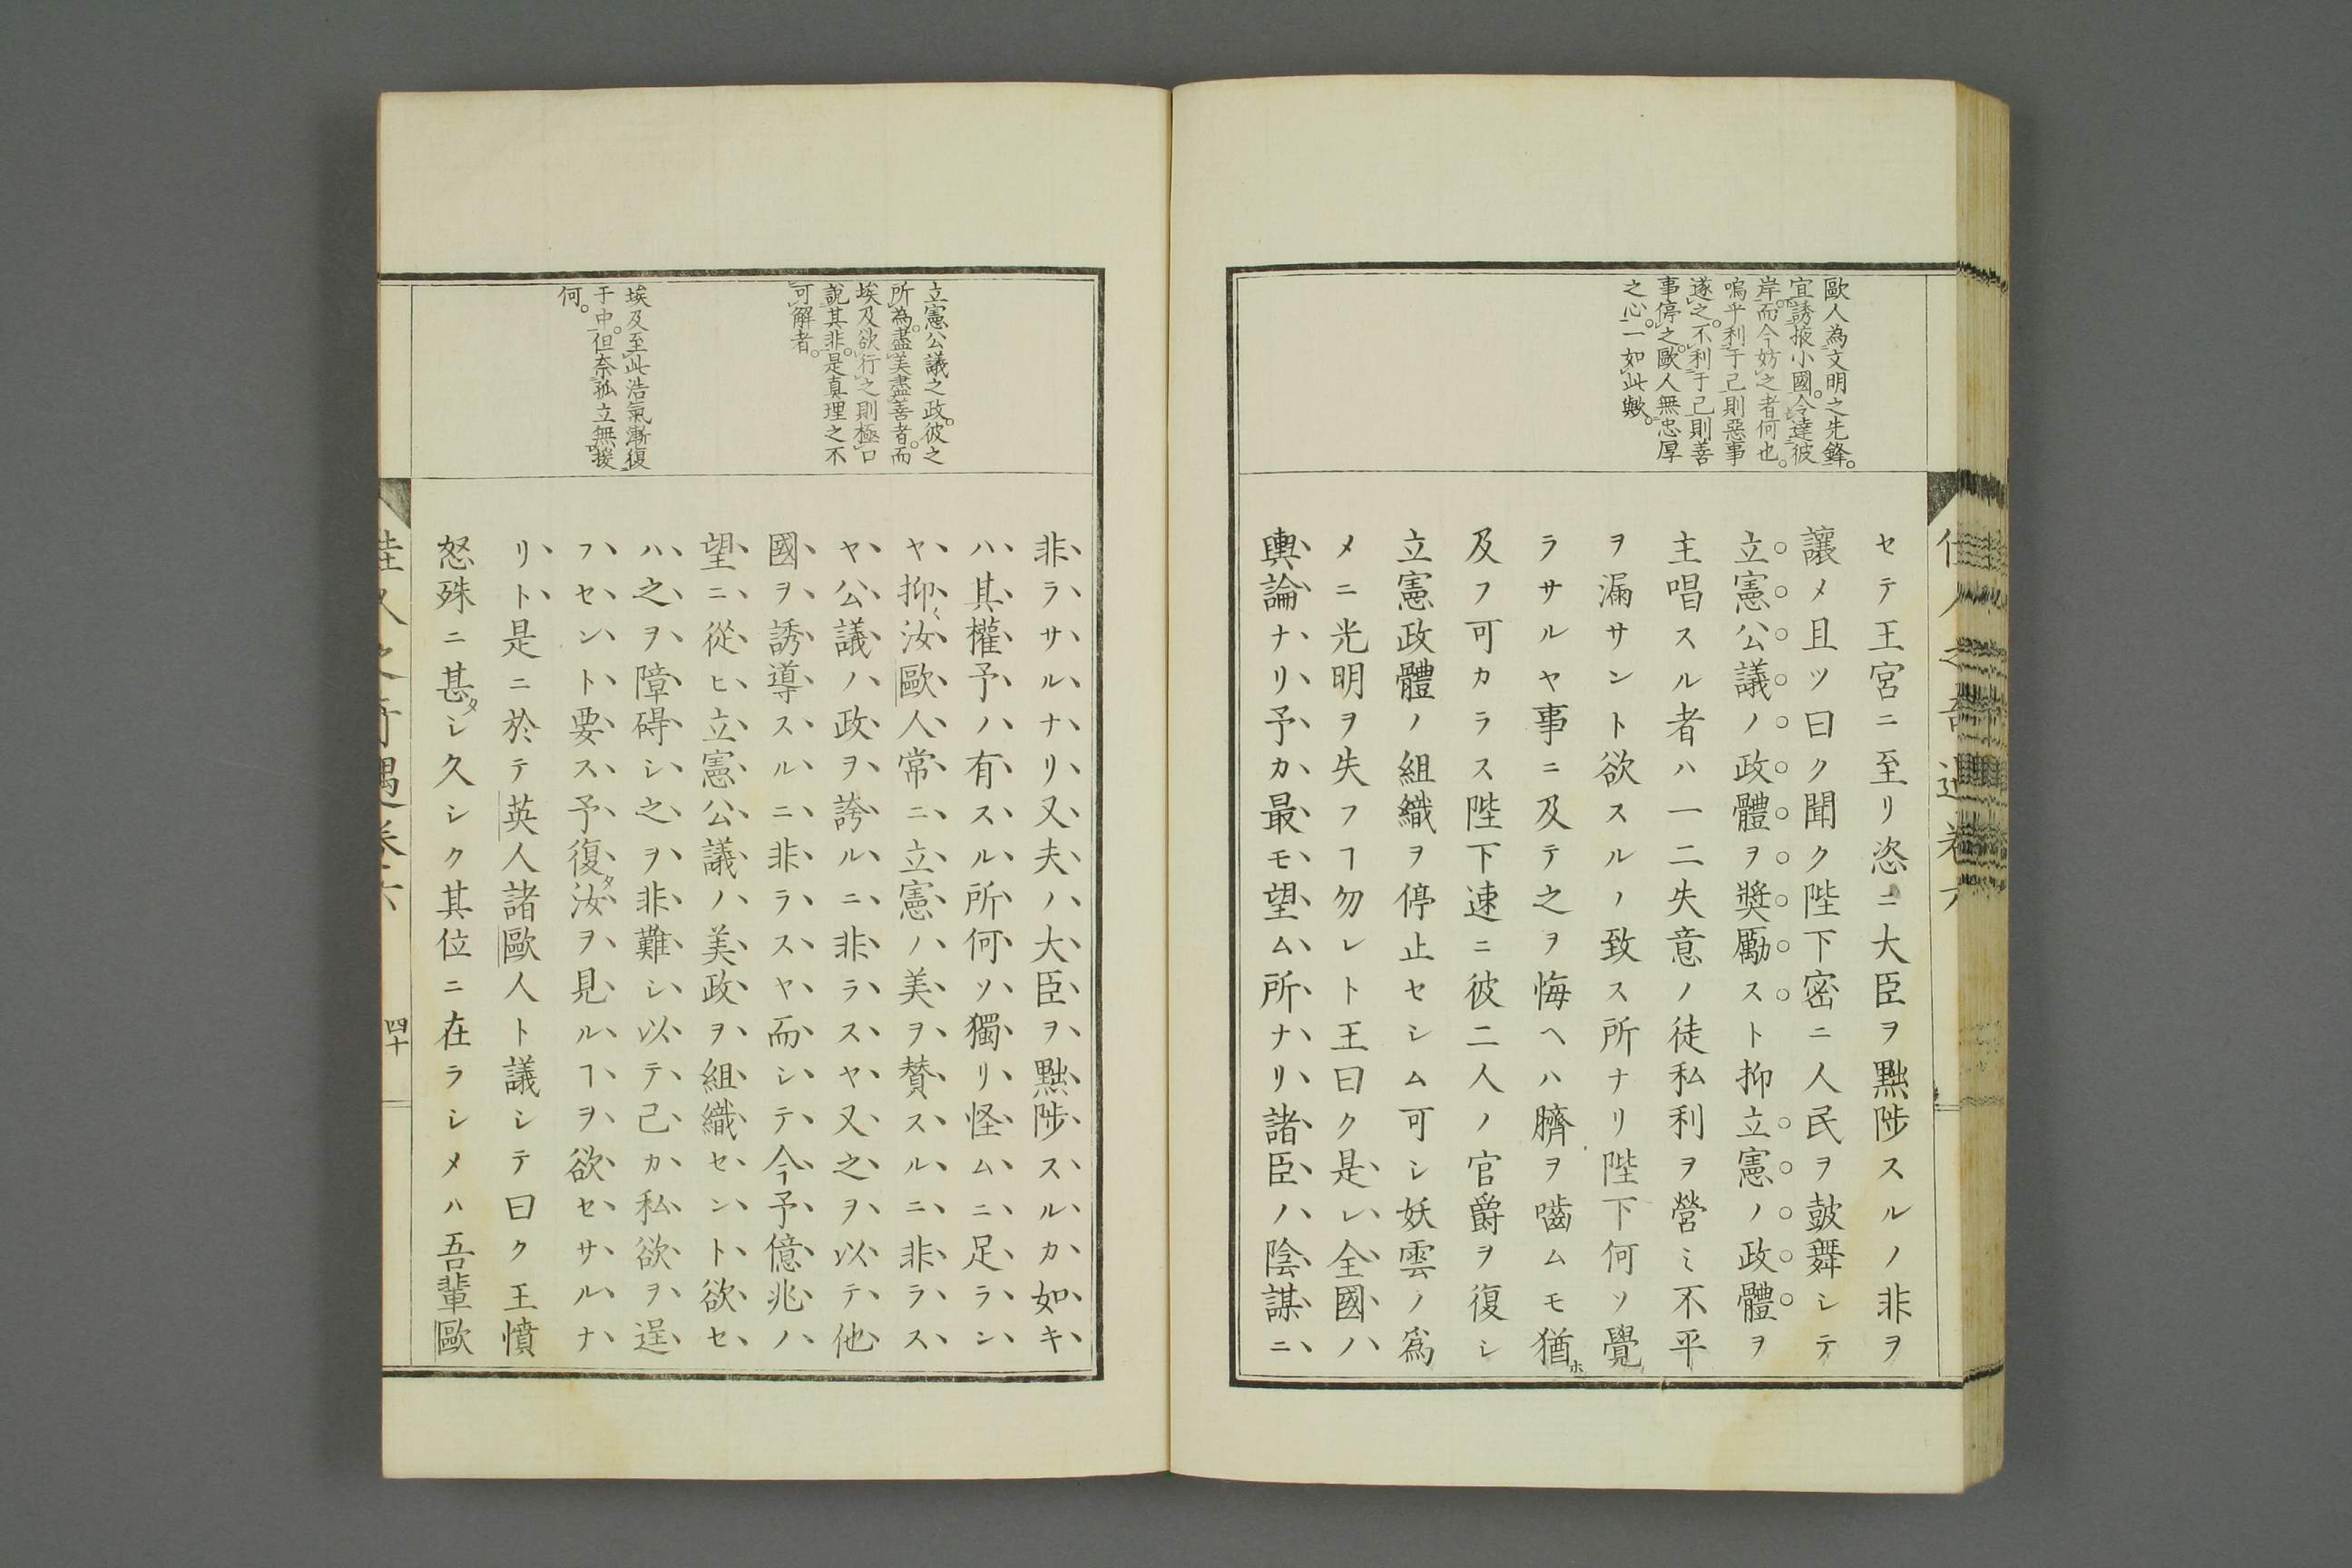 歐人為文明之先鋒。
宜誘掖小國。令達彼
岸。而今妨之者何也。
嗚乎利于己則惡事
遂之。不利于己則善
事停之。歐人無忠厚
之心。一如此歟。
セテ王宮ニ至リ恣ニ大臣ヲ黜陟スルノ非ヲ
讓メ且ツ曰ク聞ク陛下密ニ人民ヲ鼓舞シテ
立憲公議ノ政體ヲ奬勵スト抑立憲ノ政體ヲ
主唱スル者ハ一二失意ノ徒私利ヲ營ミ不平
ヲ漏サント欲スルノ致ス所ナリ陛下何ソ覺
ラサルヤ事ニ及テ之ヲ悔ヘハ臍ヲ嚙ムモ猶ホ
及フ可カラス陛下速ニ彼二人ノ官爵ヲ復シ
立憲政體ノ組織ヲ停止セシム可シ妖雲ノ爲
メニ光明ヲ失フヿ勿レト王曰ク是レ全國ハ
輿論ナリ予カ最モ望ム所ナリ諸臣ノ陰謀ニ
立憲公議之政。彼之
所為。盡美盡善者。而
埃及欲行之則極口
說其非。是真理之不
可解者。
埃及至此浩氣漸復
于中。但奈孤立無援
何。
非ラサルナリ又夫ノ大臣ヲ黜陟スルカ如キ
ハ其權予ノ有スル所何ソ獨リ怪ムニ足ラン
ヤ抑〱汝歐人常ニ立憲ノ美ヲ贊スルニ非ラス
ヤ公議ノ政ヲ誇ルニ非ラスヤ又之ヲ以テ他
國ヲ誘導スルニ非ラスヤ而シテ今予億兆ノ
望ニ從ヒ立憲公議ノ美政ヲ組織セント欲セ
ハ之ヲ障碍シ之ヲ非難シ以テ己カ私欲ヲ逞
フセント要ス予復タ汝ヲ見ルヿヲ欲セサルナ
リト是ニ於テ英人諸歐人ト議シテ曰ク王憤
怒殊ニ甚タシ久シク其位ニ在ラシメハ吾輩歐
佳人之奇遇卷六
四十